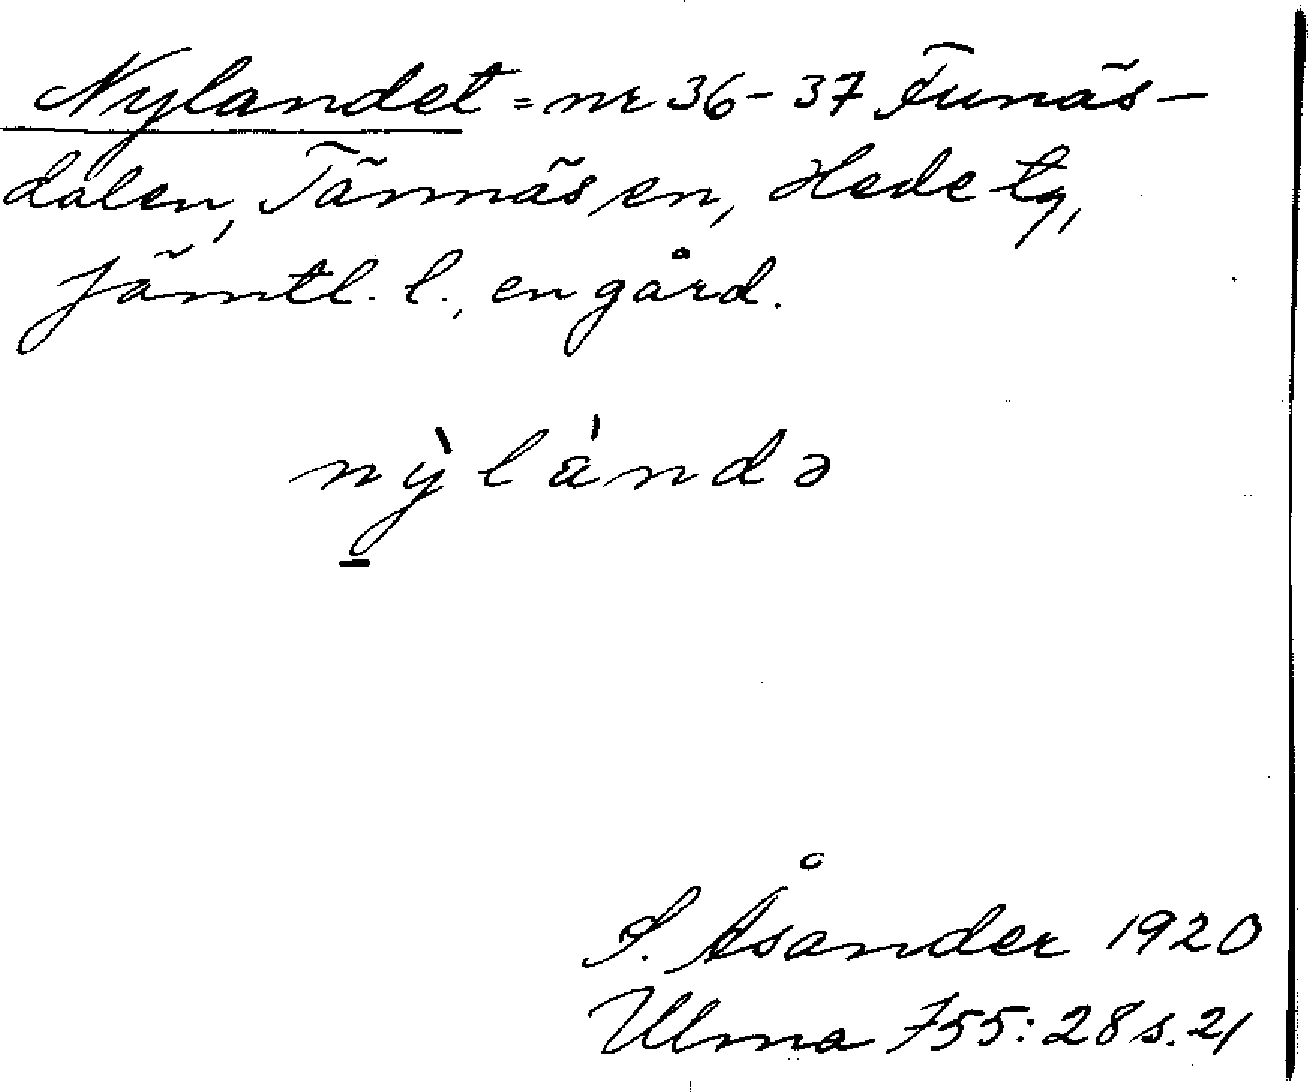 Nylandet = nr 36-37 Funäs-
dalen, Tännäs sn, Hede tg,
Jämtl. l., en gård.
nỳlàndə
S. Åsander 1920
Ulma 755:28 s. 21